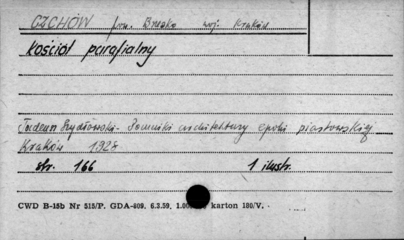 CZCHÓW pow. Brzesko woj. Kraków
Kościół parafialny
Tadeusz Szydłowski - Pomniki architektury epoki piastowskiej
Kraków 1928
str. 166 1 ilustr.
CWD B-15b Nr 515/P. GDA-809. 6.3.59. 1.00 karton 180/V.